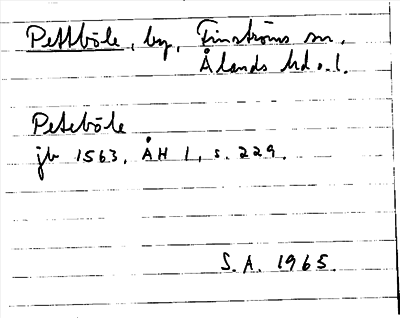 Pettböle, by, Finströms sn,
Ålands hd o. l.
Peteböle
jb 1563, ÅH 1, s. 229.
S.A. 1965.